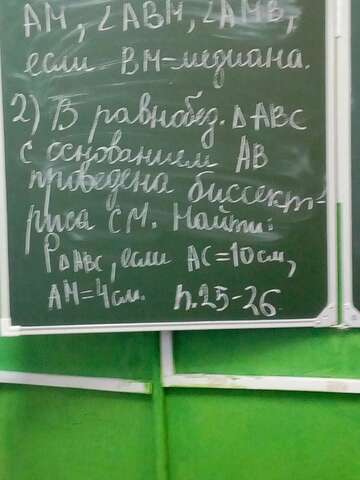 АМ, ∠АВМ, ∠АМВ,
если ВМ-медиана.
2) В равнобед. ΔАВС
с основанием АВ
проведена биссект-
риса СМ. Найти:
PΔABC, если АС=10см,
АМ=4см. п.25-26